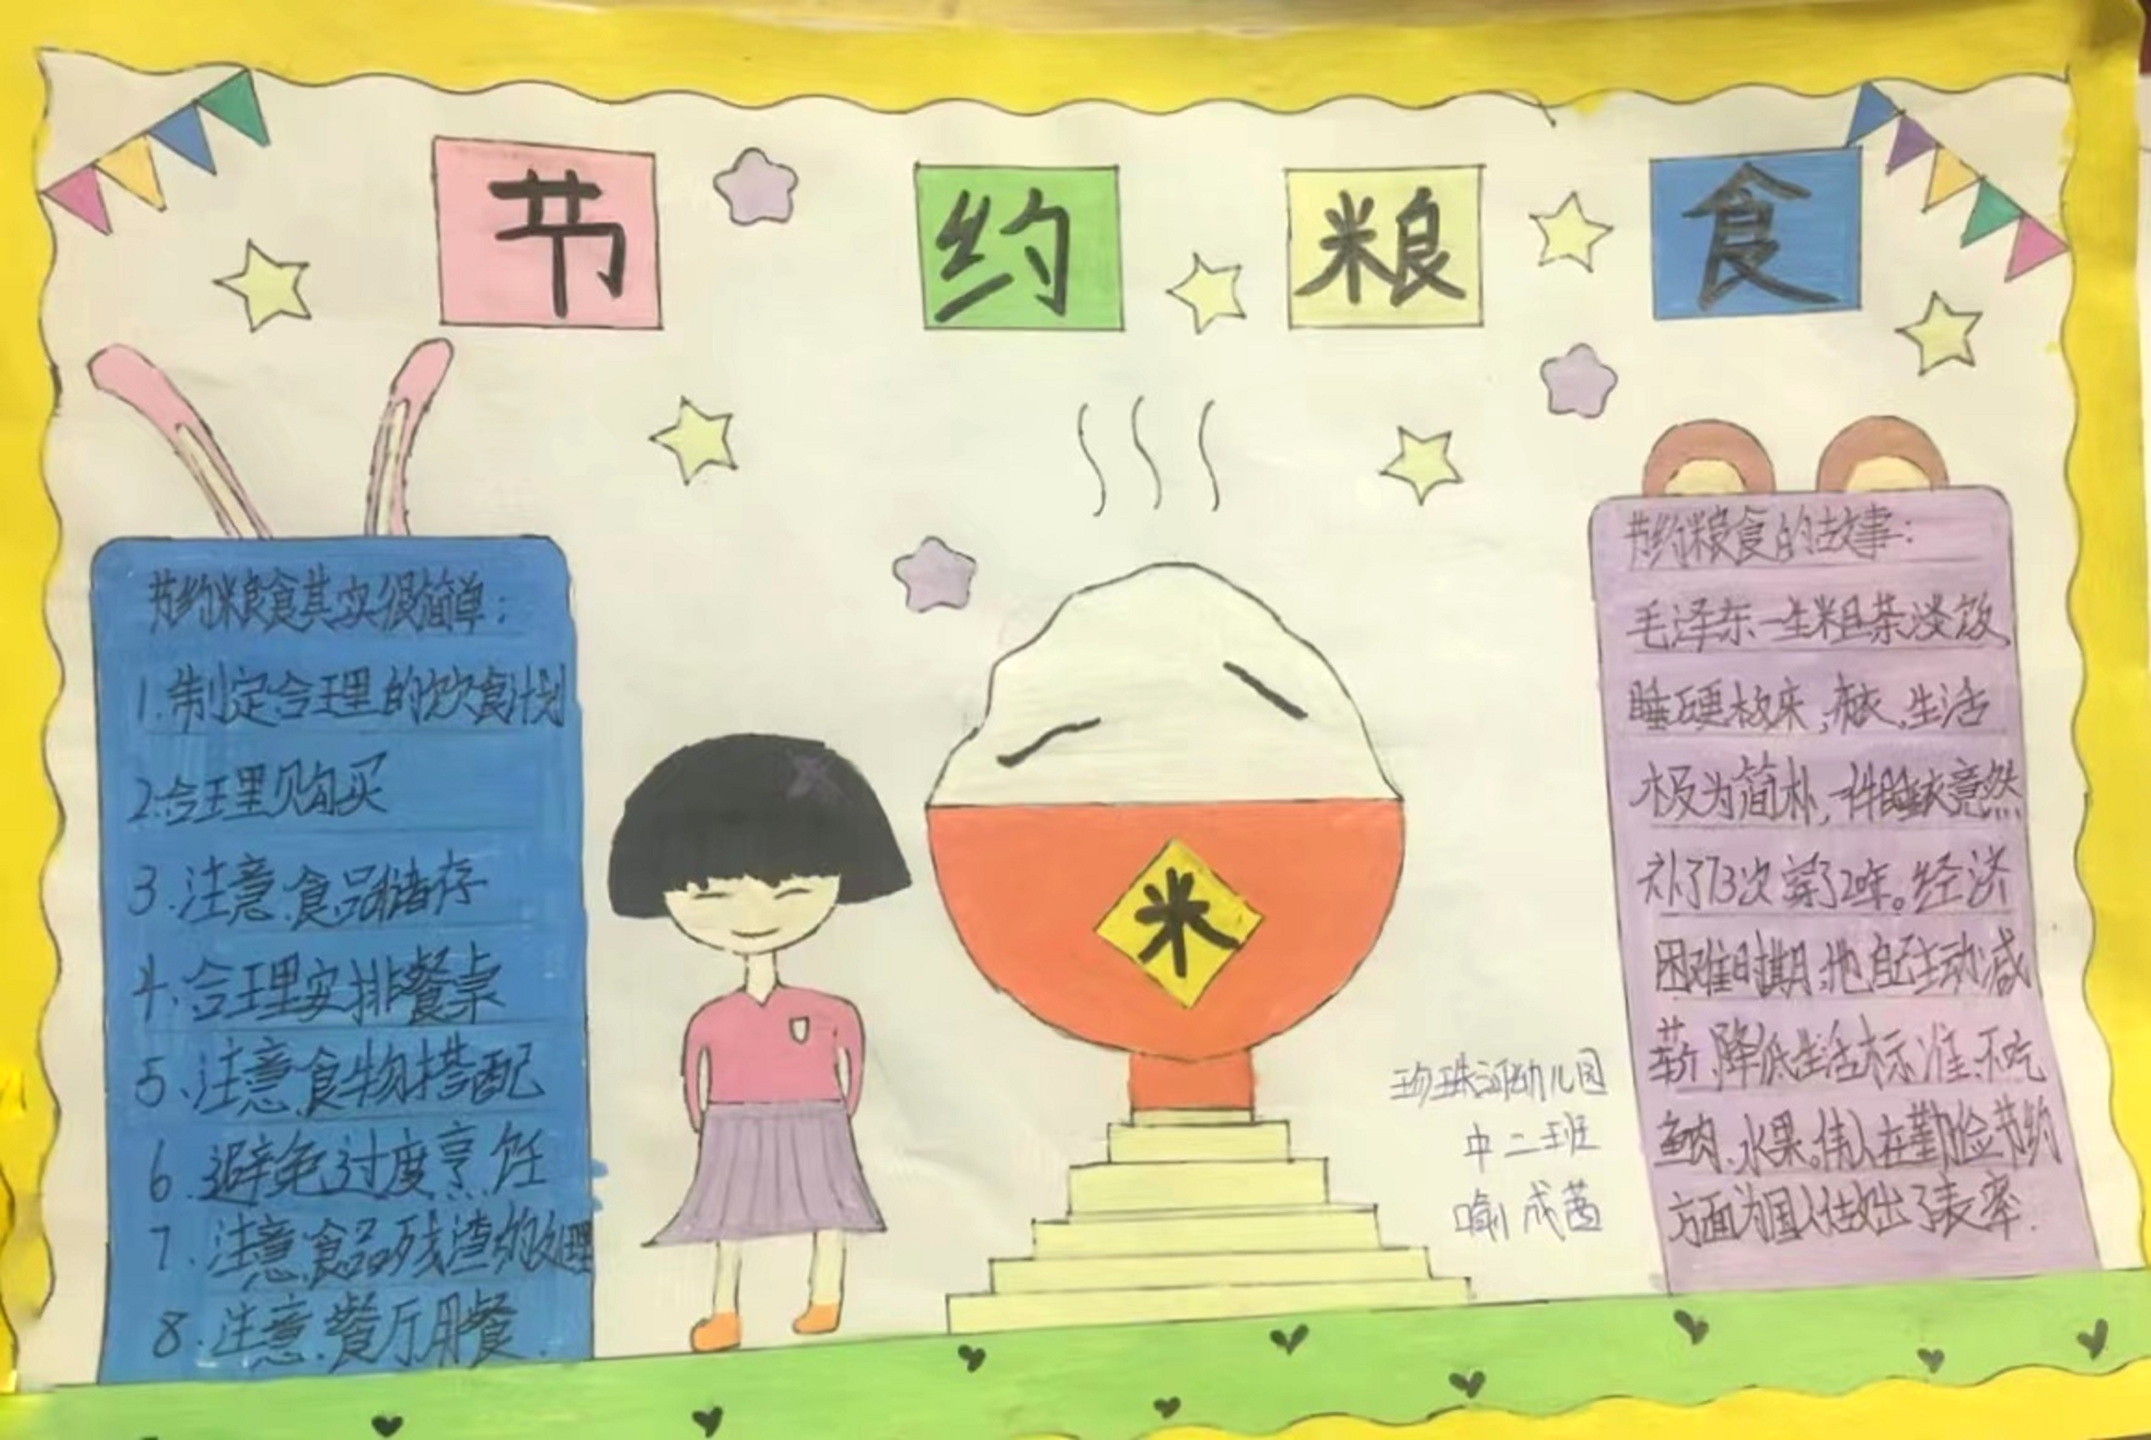 节约粮食
节约粮食其实很简单:
1.制定合理的饮食计划
2.合理购买
3.注意食品储存
4.合理安排餐桌
5.注意食物搭配
6.避免过度烹饪
7.注意食品残渣的处理
8.注意餐厅用餐.
米
珍珠河幼儿园
中二班
喻成茜
节约粮食的故事:
毛泽东一生粗茶淡饭
睡硬板床,衣,生活
极为简朴,一件睡衣竟然
补了73次穿了20年。经济
困难时期,他自己主动减
薪、降低生活标准,不吃
鱼肉、水果。伟人在勤俭节约
方面为国人做出了表率.